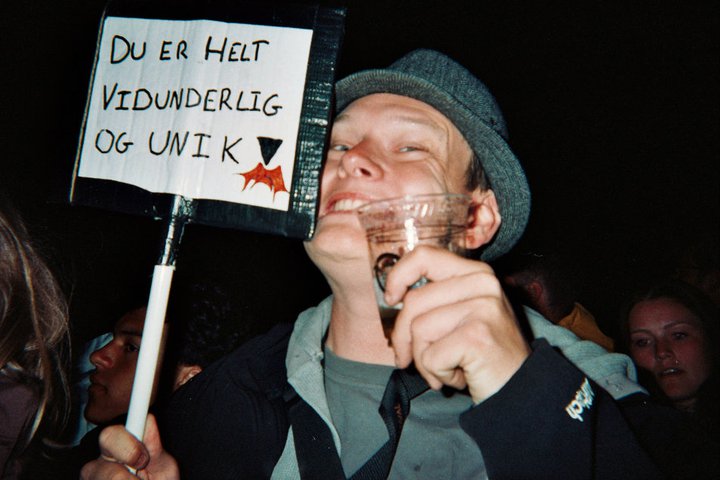 DU ER HELT
VIDUNDERLIG
OG UNIK!